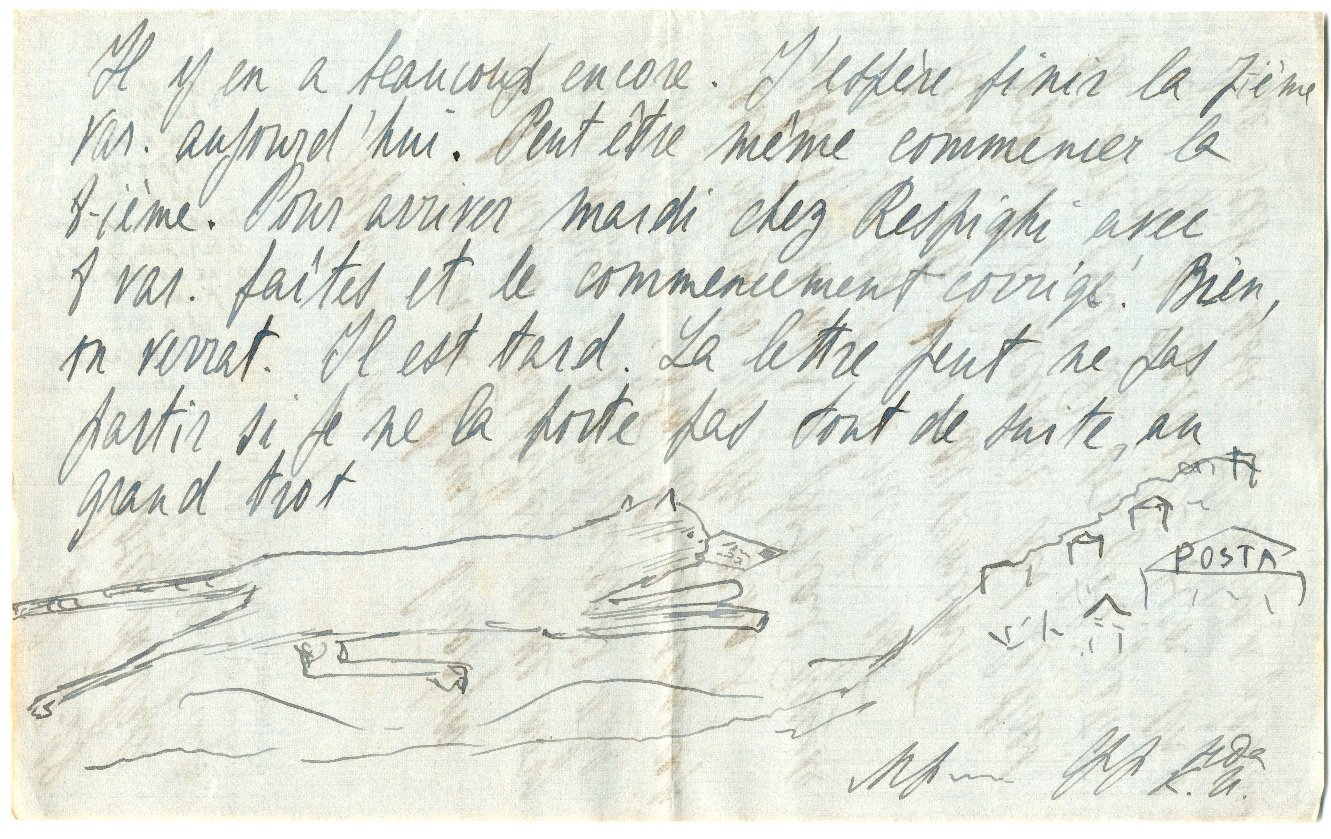 Il y en a beaucoup encore. J'espère finir la 7ième
var. aujourd'hui. Peut être même commencer la
8-ième. Pour arriver mardi chez Respighi avec
8 var. faîtes et le commencement corrigé! Bien,
on verrat. Il est tard. La lettre peut ne pas
partir si je ne la porte pas tout de suite, au
grand trot
POSTA